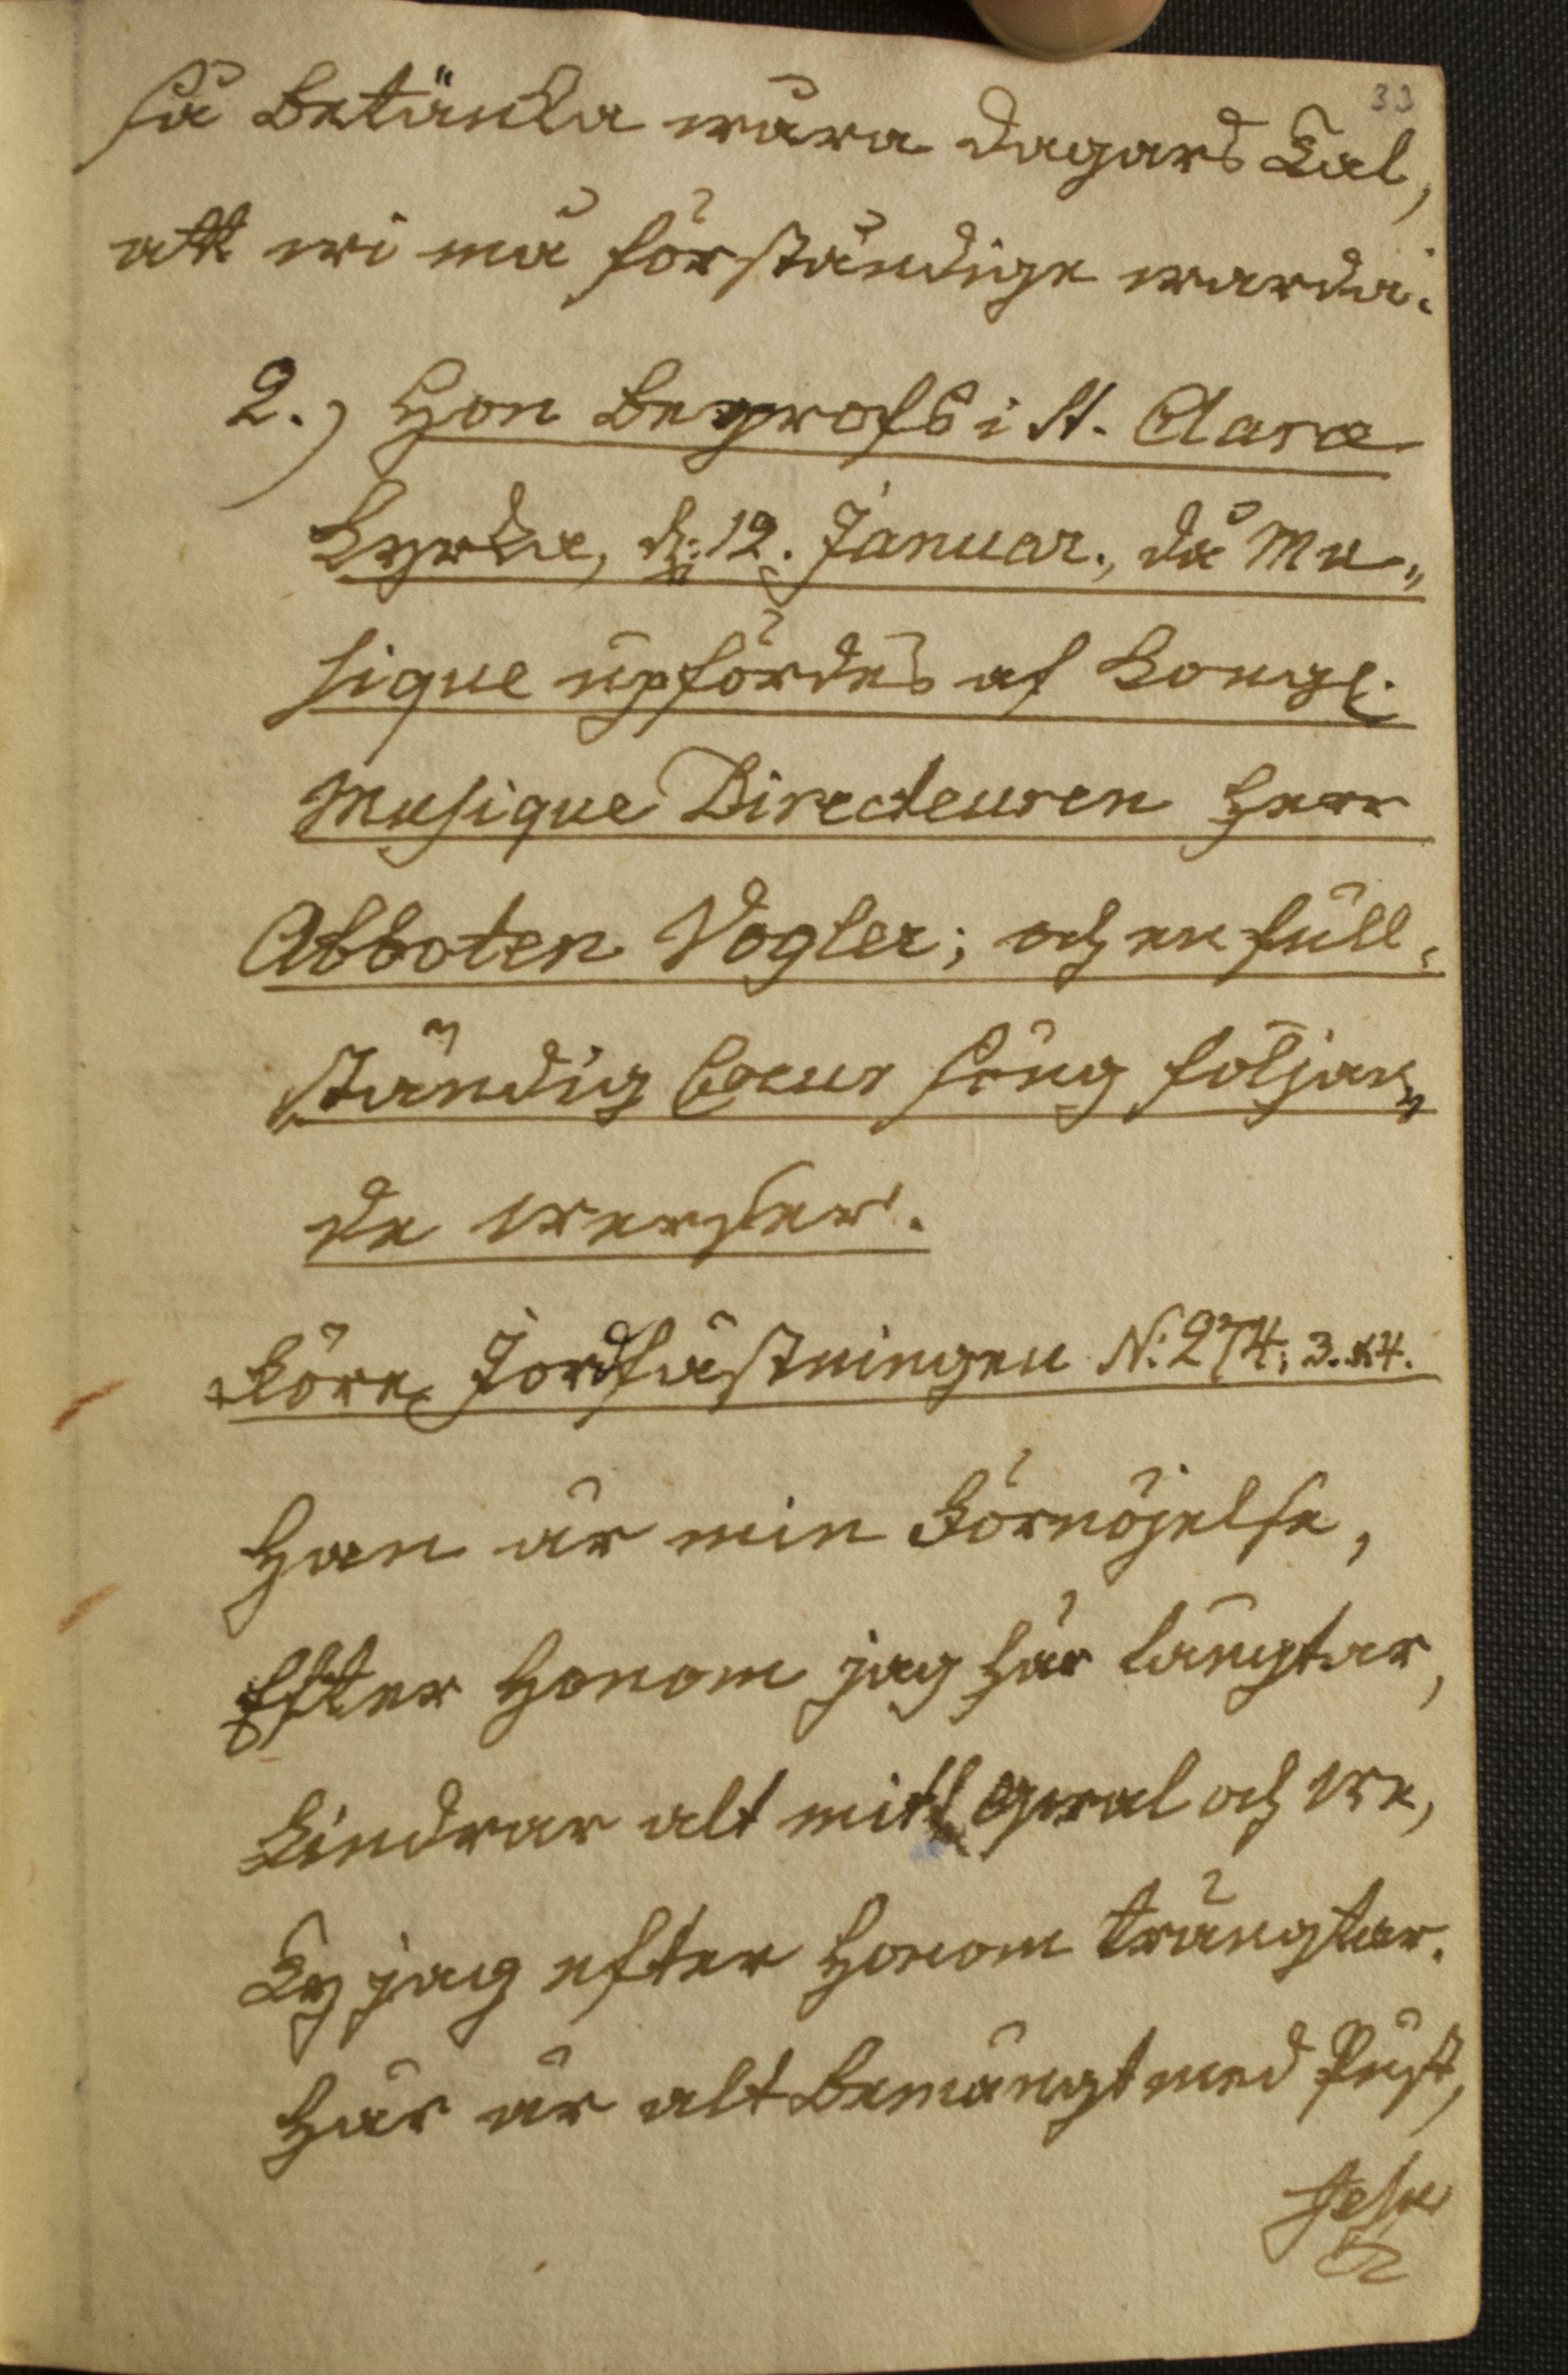 33
så betänka wåra dagars Tal,
att wi må förståndige warda.
2.) Hon begrofs i St. Clara
Kyrka, d: 12. Januar., då Mu„
sique upfördes af Kongl.
Musique Directeuren Herr
Abboten Vogler; och en full„
ständig Coeur söng följan„
de werser.
Före Jordfästningen N: 274: 3. & 4.
Han är min Förnöjelse,
Efter Honom jag här längtar,
Lindrar alt mitt qwal och we,
Ty jag efter Honom trängtar.
Här är alt bemängt med Pust,